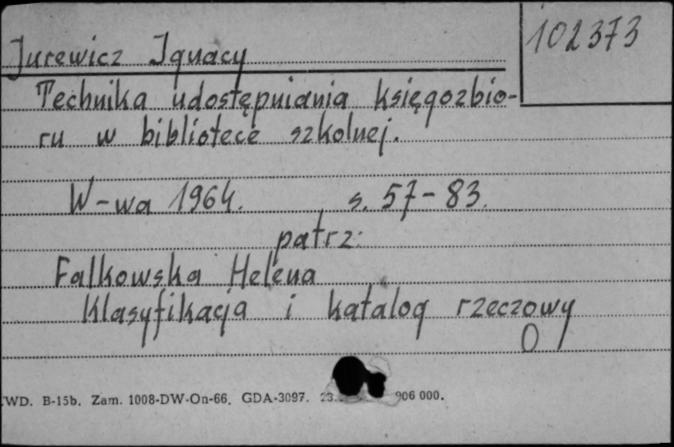 102373
Jurewicz Ignacy
Technika udostępniania księgozbio-
ru w bibliotece szkolnej.
W-wa 1964. s. 57-83.
patrz:
Falkowska Helena
Klasyfikacja i katalog rzeczowy
O
WD. B-15b. Zam. 1008-DW-On-66. GDA-3097. 23. 906 000.